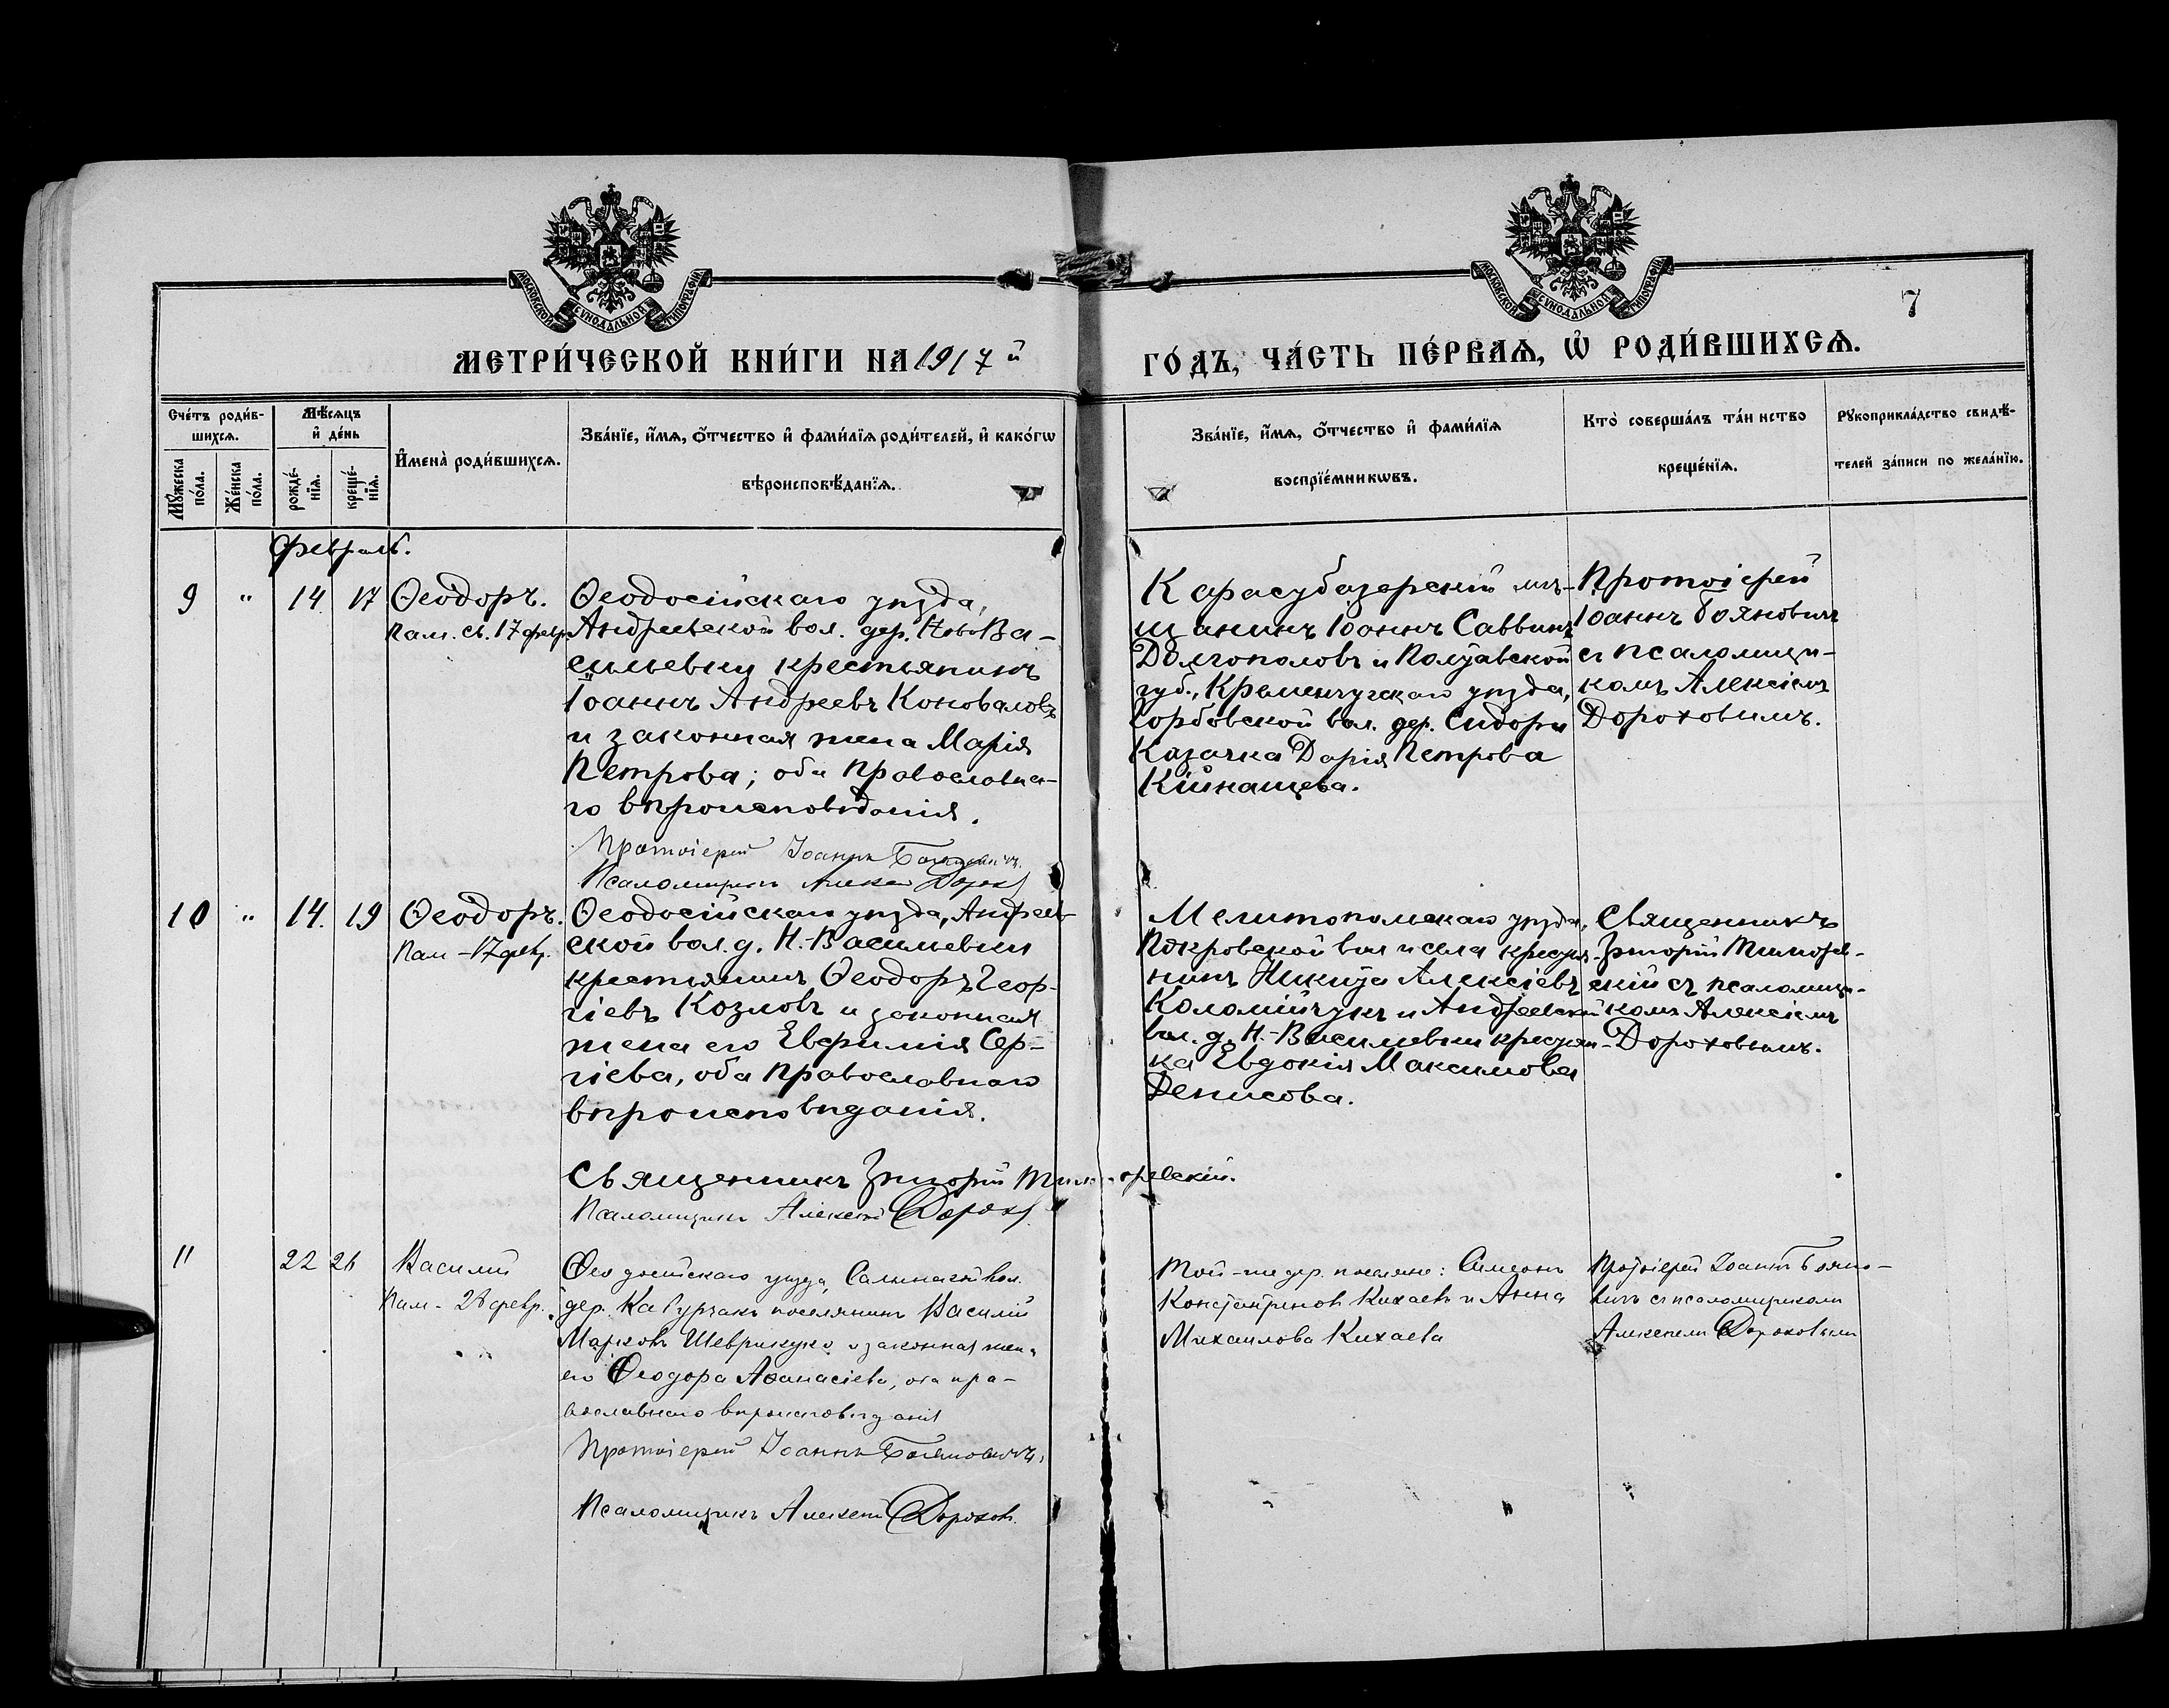 МОСКОВСКОЙ СѴНОДАЛЬНОЙ ТИПОГРАФІИ
МОСКОВСКОЙ СѴНОДАЛЬНОЙ ТИПОГРАФІИ
7
МЕТРИ́ЧЕСКОЙ КНИ́ГИ НА 1917й
ГО́ДЪ, ЧА́СТЬ ПЕ́РВАѦ, Ѡ҆ РОДИ́ВШИХСѦ.
Сче́тъ роди́в-
шихсѧ.
Мꙋ́жеска по́ла.
Же́нска по́ла.
Мѣ́сѧцъ
и҆ де́нь
рожде́-нїѧ.
креще́-нїѧ.
И҆мена̀ роди́вшихсѧ.
Зва́нїе, и҆́мѧ, ѻ҆́тчество и҆ фами́лїѧ роди́телей, и҆ како́гѡ
вѣроисповѣ́данїѧ.
Зва́нїе, и҆́мѧ, ѻ҆́тчество и҆ фами́лїѧ
воспрїе́мникѡвъ.
Кто̀ соверша́лъ та́инство
креще́нїѧ.
Рꙋкоприкла́дство свидѣ́-
телей за́писи по жела́нїю.
Февраль.
9 " 14 17 Ѳеодоръ.
Пам. св. 17 февр.
Ѳеодосійскаго уѣзда,
Андреевской вол. дер. Ново Ва-
сильевки крестьянинъ
Іоаннъ Андреевъ Коноваловъ
и законная жена Марія
Петрова; оба православна-
го вѣроисповѣданія.
Протоіерей Іоаннъ Бояновичъ.
Псаломщикъ Алексей Дорох
Карасубазарскій мѣ-
щанинъ Іоаннъ Саввинъ
Долгополовъ и Полтавской
губ., Кременчугскаго уѣзда,
вол. дер. Сидоры
Козачка Дарія Петрова
Протоіерей
Іоаннъ Бояновичъ
съ псаломщи-
комъ Алексіемъ
Дороховымъ.
10 " 14. 19 Ѳеодоръ.
Пам - 17 февр.
Ѳеодосійскаго уѣзда, Андреев-
ской вол. д. Н.-Васильевки
крестьянинъ Ѳеодоръ Геор-
гіевъ Козловъ и законная
жена его Евфимія Сер-
гіева, оба православнаго
вѣроисповѣданія.
Священникъ Григорій
Псаломщикъ Алексей Дорох
Мелитопольскаго уѣзда,
Покровской вол и села крестья-
нинъ Никита Алексіевъ
Коломійчукъ и Андреевской
вол. д. Н.-Васильевки крестьян-
ка Евдокія Максимова
Денисова.
Священникъ
Григорій
скій съ псаломщи-
комъ Алексіемъ
Дороховымъ.
11 22 26 Василій
Пам - 28 февр.
Ѳеодосійскаго уѣзда, вол.
дер. поселянинъ Василій
Марковъ и законная жена
его Ѳеодора Аѳанасіева, оба пра-
вославнаго вѣроисповѣданія
Протоіерей Іоаннъ Бояновичъ.
Псаломщикъ Алексей Дорохов
Той-же дер. поселяне: Симеонъ
Константиновъ Кихаевъ и Анна
Михаилова Кихаева
Протоіерей Іоаннъ Бояно-
вичъ съ псаломщикомъ
Алексеемъ Дороховымъ